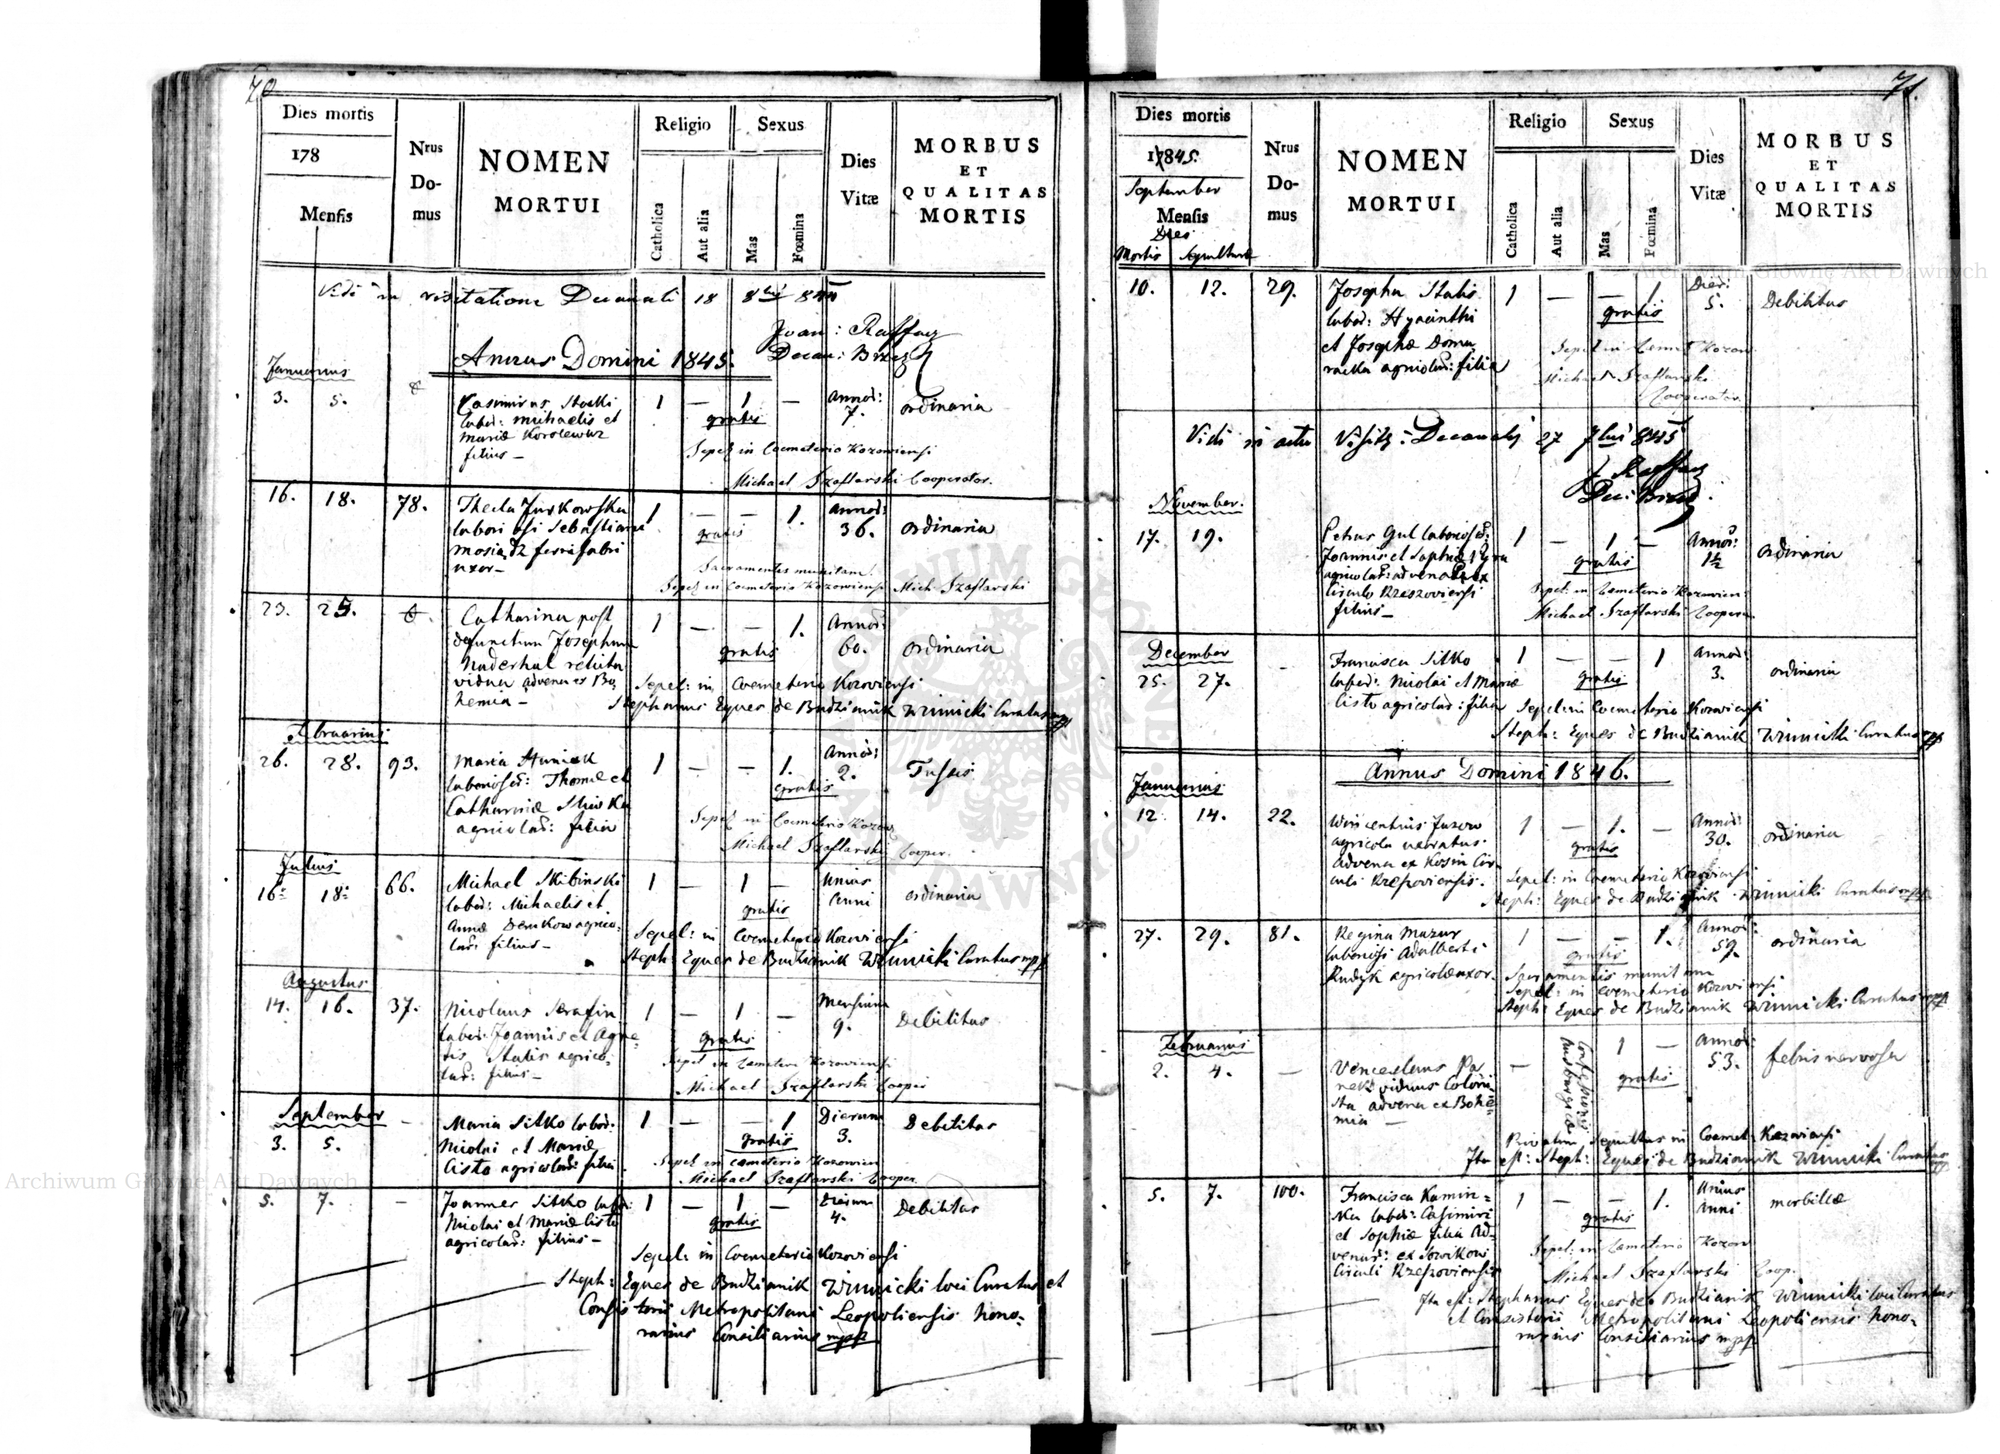 70
Dies mortis
178
Mensis
Nrus
Do-
mus
NOMEN
MORTUI
Religio
Catholica
Aut alia
Sexus
Mas
Fœmina
Dies
Vitæ
MORBUS
ET
QUALITAS
MORTIS
Vidi in visitatione Decanali 18 844
Joan: Raffay
Annus Domini 1845.
Januarius
3. 5.
Casimirus
labor: Michaelis et
Mariæ
filius –
1 — 1 —
gratis
Annor:
7.
ordinaria
Sepel: in Coemeterio Kozoviensi
Michael Szaflarski Cooperator.
16. 18. 78.
Thecla Jurkowska
laboriosi Sebastiani
ferrifabri
uxor –
1 — — 1.
gratis
Annor:
36.
ordinaria
Sacramentis munitam.
Sepel: in Coemeterio Kozoviensi Mich. Szaflarski
23. 25.
Catharina post
defunctum Josephum
relicta
vidua advena ex Bo
hemia –
1 — — 1.
gratis
Annor:
60.
ordinaria
Sepel: in Coemeterio Kozoviensi
Stephanus Eques de Budzianik Winnicki Curatus mpp
Februarius
26. 28. 93.
Maria
laborios: Thomæ et
Catharinæ
agricolar: filia
1 — — 1.
gratis
Annor:
2.
Tussis
Sepel: in Coemeterio Kozov
Michael Szaflarski Cooper.
Julius
16: 18: 66.
Michael Skibinski
labor: Michaelis et
Annæ Demkow agrico-
lar: filius –
1 — 1 —
gratis
Unius
Anni
ordinaria
Sepel: in Coemeterio Kozoviensi
Steph: Eques de Budzianik Winnicki Curatus mpp
Augustus
14. 16. 37.
Nicolaus Serafin
labor: Joannis et Agne-
tis Stalis agrico-
lar: filius –
1 — 1 —
gratis
Mensium
9.
Debilitas
Sepel: in Cemeteri Kozoviensi
Michael Szaflarski Cooper
September
3. 5. –
Maria Sitko labor:
Nicolai et Mariæ
Cisto agricolar: filia.
1 — — 1
gratis
Dierum
3.
Debilitas
Sepel: in Cemeterio Kozovien
Michael Szaflarski Cooper.
5. 7. –
Joannes Sitko labor:
Nicolai et Mariæ Cisto
agricolar: filius –
1 — 1 —
gratis
Dierum
4.
Debilitas
Sepel: in Coemeterio Kozoviensi
Steph: Eques de Budzianik Winnicki loci Curatus et
Consistorii Metropolitani Leopoliensis hono-
rarius Consiliarius mpp
71.
Dies mortis
1845.
September
Mensis
Dies
Mortis Sepulturæ
Nrus
Do-
mus
NOMEN
MORTUI
Religio
Catholica
Aut alia
Sexus
Mas
Fœmina
Dies
Vitæ
MORBUS
ET
QUALITAS
MORTIS
10. 12. 29.
Josepha Stalis
labor: Hyacinthi
et Josephæ
agricolar: filia
1 — — 1
gratis
Dier:
5.
Debilitas
Sepel: in Cemet Kozov
Michael Szaflarski
Cooperator
Vidi in actu Visit: Decanalis 27 845
J. Raffay
November.
17. 19.
Petrus Gul laborios:
Joannis et Sophiæ
agricolar: advena ex
Circulo Rzeszoviensi
filius –
1 — 1 —
gratis
Annor:
1½
ordinaria
Sepel: in Cemeterio Kozovien
Michael Szaflarski Coopera
December
25. 27.
Francisca Sitko
labor: Nicolai et Mariæ
Cisto agricolar: filia
1 — — 1
gratis
Annor:
3.
ordinaria
Sepel: in Coemeterio Kozoviensi
Steph: Eques de Budzianik Winnicki Curatus mpp
Annus Domini 1846.
Januarius
12. 14. 22.
Wincentius
agricola
Advena ex Cir-
culi Rzeszoviensis.
1 — 1. —
gratis
Annor:
30.
ordinaria
Sepel: in Coemeterio Kozoviensi
Steph: Eques de Budzianik Winnicki Curatus mpp
27. 29. 81.
Regina Mazur
laboriosi Adalberti
Rudyk agricolæ uxor.
1 — — 1.
gratis
Annor:
59.
ordinaria
Sacramentis munitam
Sepel: in Coemeterio Kozoviensi
Steph: Eques de Budzianik Winnicki Curatus mpp
Februarius
2. 4. —
Venceslaus
viduus Coloni-
sta advena ex Bohe-
mia —
— 1 —
gratis
Annor:
53.
febris nervosa
in Coemet: Kozoviensi
Ita est: Steph: Eques de Budzianik Winnicki Curatus mpp
5. 7. 100.
Francisca Kamin-
ska labor: Casimiri
et Sophiæ filia Ad-
venar: ex
Circuli Rzeszoviensis
1 — — 1.
gratis
Unius
Anni
morbillæ
Sepel: in Cemeterio Kozov
Michael Szaflarski Coop.
Ita est: Stephanus Eques de Budzianik Winnicki loci Curatus
et Consistorii Metropolitani Leopoliensis hono-
rarius Consiliarius mpp
Archiwum Główne Akt Dawnych
Archiwum Główne Akt Dawnych
ARCHIWUM GŁÓWNE AKT DAWNYCH